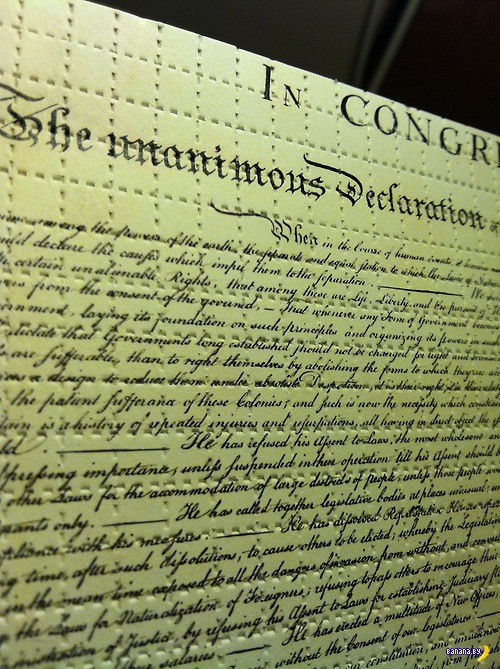 IN CONGR
The unanimous Declaration of
When in the Course of human events, it
among the powers of the earth, the separate and equal station to which the Laws of
declare the causes which impel them to the separation.
certain unalienable Rights, that among these are Life, Liberty, and the pursuit of
from the consent of the governed, — That whenever any Form of Government becomes
laying its foundation on such principles and organizing its powers in such
dictate that Governments long established should not be changed for light and transient
are sufferable, than to right themselves by abolishing the forms to which they are
a design to reduce them under absolute Despotism, it is their right, it is their
the patient sufferance of these Colonies; and such is now the necessity which constrains
is a history of repeated injuries and usurpations, all having in direct object the
He has refused his Assent to Laws, the most wholesome and
pressing importance, unless suspended in their operation till his Assent should
other Laws for the accommodation of large districts of people, unless those people
only. He has called together legislative bodies at places unusual,
with his measures. He has dissolved
time, after such dissolutions, to cause others to be elected; whereby the Legislative
the mean time exposed to all the dangers of invasion from without, and
the Laws for Naturalization of Foreigners; refusing to pass others to encourage their
of Justice, by refusing his Assent to Laws for establishing Judiciary
He has erected a multitude of New Offices,
without the Consent of our legislatures.
Banana.by